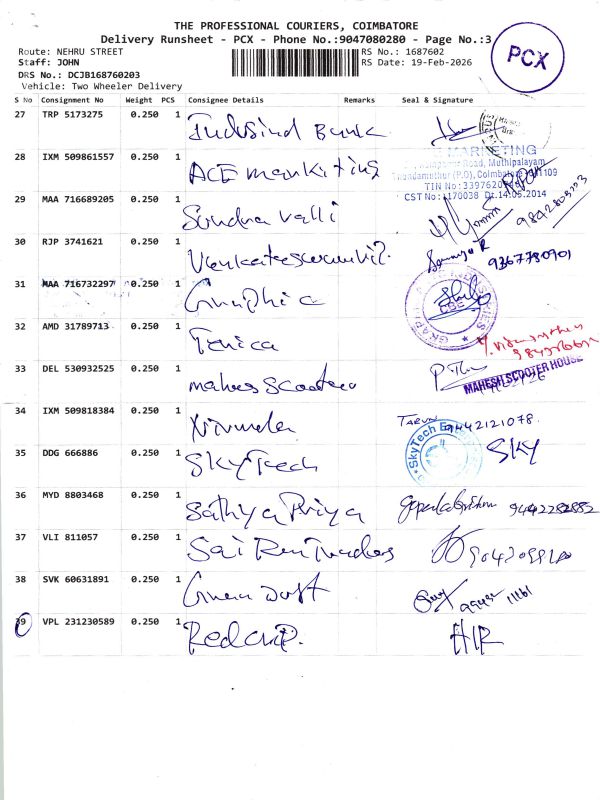 THE PROFESSIONAL COURIERS, COIMBATORE
Delivery Runsheet - PCX - Phone No.:9047080280 - Page No.:3
PCX
Route: NEHRU STREET
RS No.: 1687602
Staff: JOHN
RS Date: 19-Feb-2026
DRS No.: DCJB168760203
Vehicle: Two Wheeler Delivery
S No Consignment No Weight PCS Consignee Details Remarks Seal & Signature
27 TRP 5173275 0.250 1 Indusind Bank
28 IXM 509861557 0.250 1 ACE marketing
MARKETING
Muthipalayam
(P.O), Coimbatore
TIN No:
CST No: 170038 Dt.14.05.2014
29 MAA 716689205 0.250 1 Sundra valli
30 RJP 3741621 0.250 1 9367780901
31 MAA 716732297 0.250 1
32 AMD 31789713 0.250 1
33 DEL 530932525 0.250 1 mahes scooter
MAHESH SCOOTER HOUSE
34 IXM 509818384 0.250 1 Nirmala TARUN 9442121078
35 DDG 666886 0.250 1 SkyTech SkyTech SKY
36 MYD 8803468 0.250 1 Sathya Priya Gopalakrishnan 9442282882
37 VLI 811057 0.250 1 Sai Ram Traders
38 SVK 60631891 0.250 1
39 VPL 231230589 0.250 1 Redchip. HIR